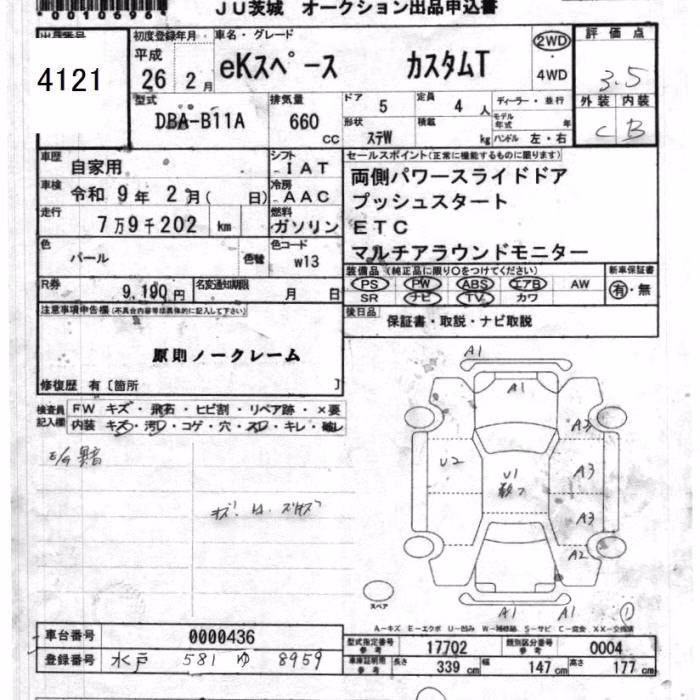 00010696
JU茨城 オークション出品申込書
出品番号
4121
初度登録年月
平成
26 2月
車名・グレード
eKスペース カスタムT
2WD
・
4WD
評価点
3.5
型式
DBA-B11A
排気量
660
CC
ドア 5
定員 4 人
形状 ステW
積載 kg
ディーラー・並行
モデル年式 年
ハンドル 左・右
外装 内装
C B
車歴 自家用
シフト IAT
車検 令和 9年 2月( 日)
冷房 AAC
走行 7万9千202 km
燃料 ガソリン
色 パール
色替
色コード W13
R券 9,190円
名変通知期限 月 日
セールスポイント(正常に機能するものに限ります)
両側パワースライドドア
プッシュスタート
ETC
マルチアラウンドモニター
装備品(純正品に限り○をつけてください)
PS PW ABS エアB AW
SR ナビ TV カワ
新車保証書
有・無
後日品 保証書・取説・ナビ取説
注意事項申告欄(不具合内容等は具体的に記入して下さい)
原則ノークレーム
修復歴 有〔箇所 〕
検査員記入欄
FW キズ・飛石・ヒビ割・リペア跡・×要
内装 キズ・汚レ・コゲ・穴・スレ・キレ・破レ
E/G 異音
A1
A1
A3
U2
U1
A3
A3
A2
A1 A1
1
スペア
A-キズ E-エクボ U-凹み W-補修跡 S-サビ C-腐食 XX-交換済
車台番号 0000436
登録番号 水戸 581 ゆ 8959
型式指定番号 参考 17702
類別区分番号 参考 0004
車庫証明用 参考 長さ 339 cm 幅 147 cm 高さ 177 cm